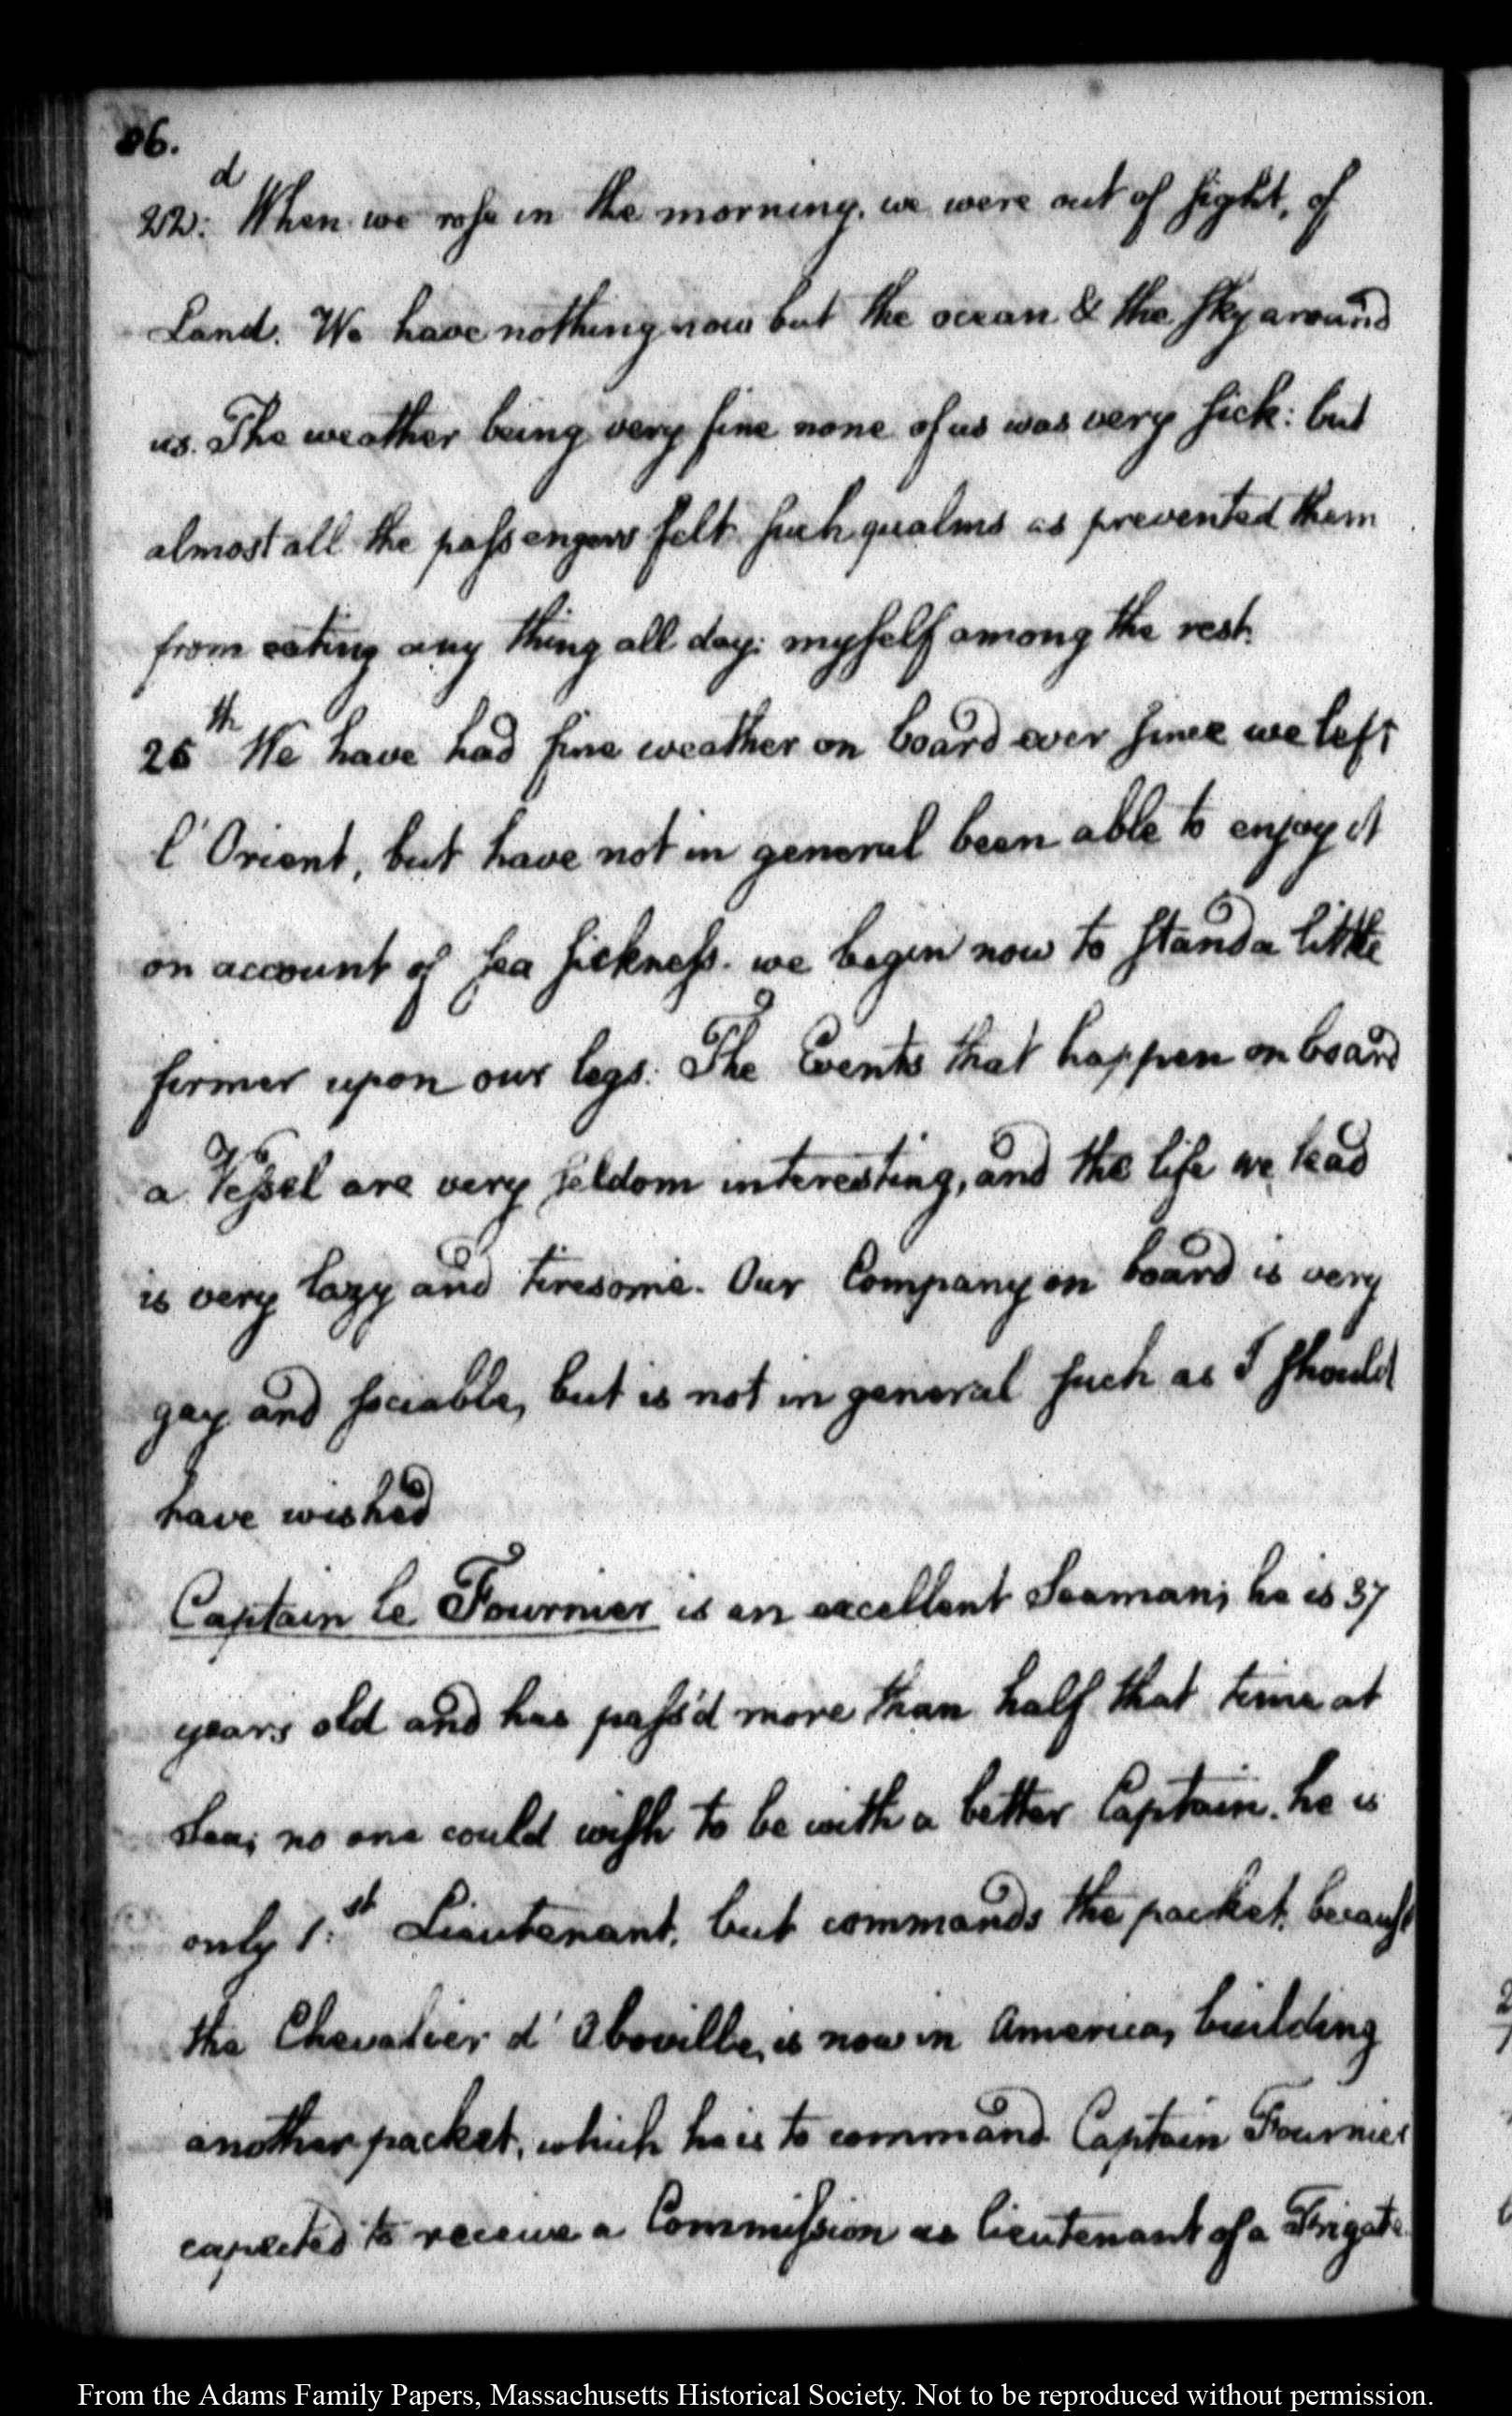 86.
22:d When we rose in the morning, we were out of sight, of
Land. We have nothing now but the ocean & the sky around
us. The weather being very fine none of us was very sick: but
almost all the passengers felt such qualms as prevented them
from eating any thing all day: myself among the rest.
25th We have had fine weather on board ever since we left
l'Orient, but have not in general been able to enjoy it
on account of sea sickness. we begin now to stand a little
firmer upon our legs. The Events that happen on board
a Vessel are very seldom interesting, and the life we lead
is very lazy and tiresome. Our Company on board is very
gay and sociable, but is not in general such as I should
have wished
Captain le Fournier is an excellent Seaman; he is 37
years old and has pass'd more than half that time at
Sea; no one could wish to be with a better Captain. he is
only 1:st Lieutenant, but commands the packet, because
the Chevalier d'Aboville, is now in America, building
another packet, which he is to command. Captain Fournier
expected to receive a Commission as lieutenant of a Frigate
From the Adams Family Papers, Massachusetts Historical Society. Not to be reproduced without permission.